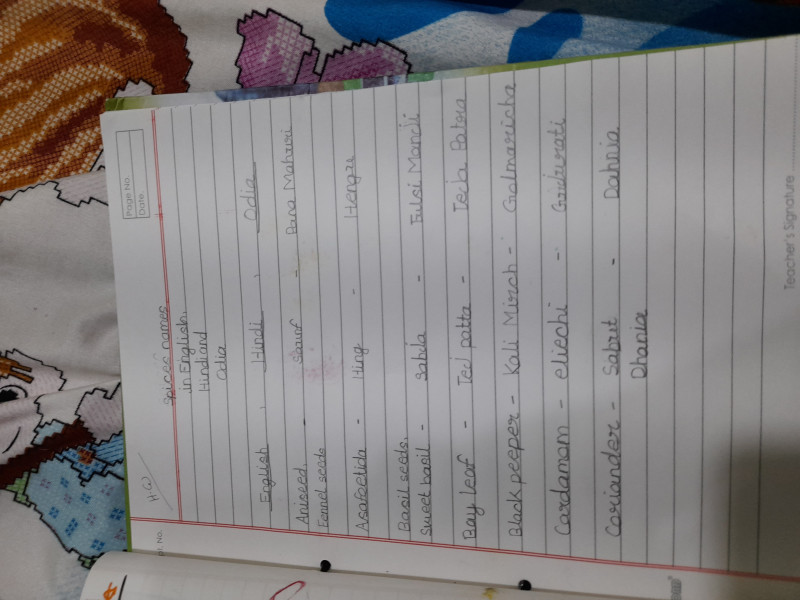 Page No.
Date
H W
Spices names
in English,
Hindi and
Odia
English , Hindi , Odia
Aniseed - Saunf - Pana Mahuri
Fennel seeds
Asafoetida - Hing - Hengu
Basil seeds,
sweet basil - Sabja - Tulsi Manji
Bay leaf - Tej patta - Teja Patra
Black peeper - Kali Mirch - Golmaricha
Cardamom - eliechi - Gujurati
Coriander - Sabut - Dahnia
Dhania
Teacher's Signature
pt. No.